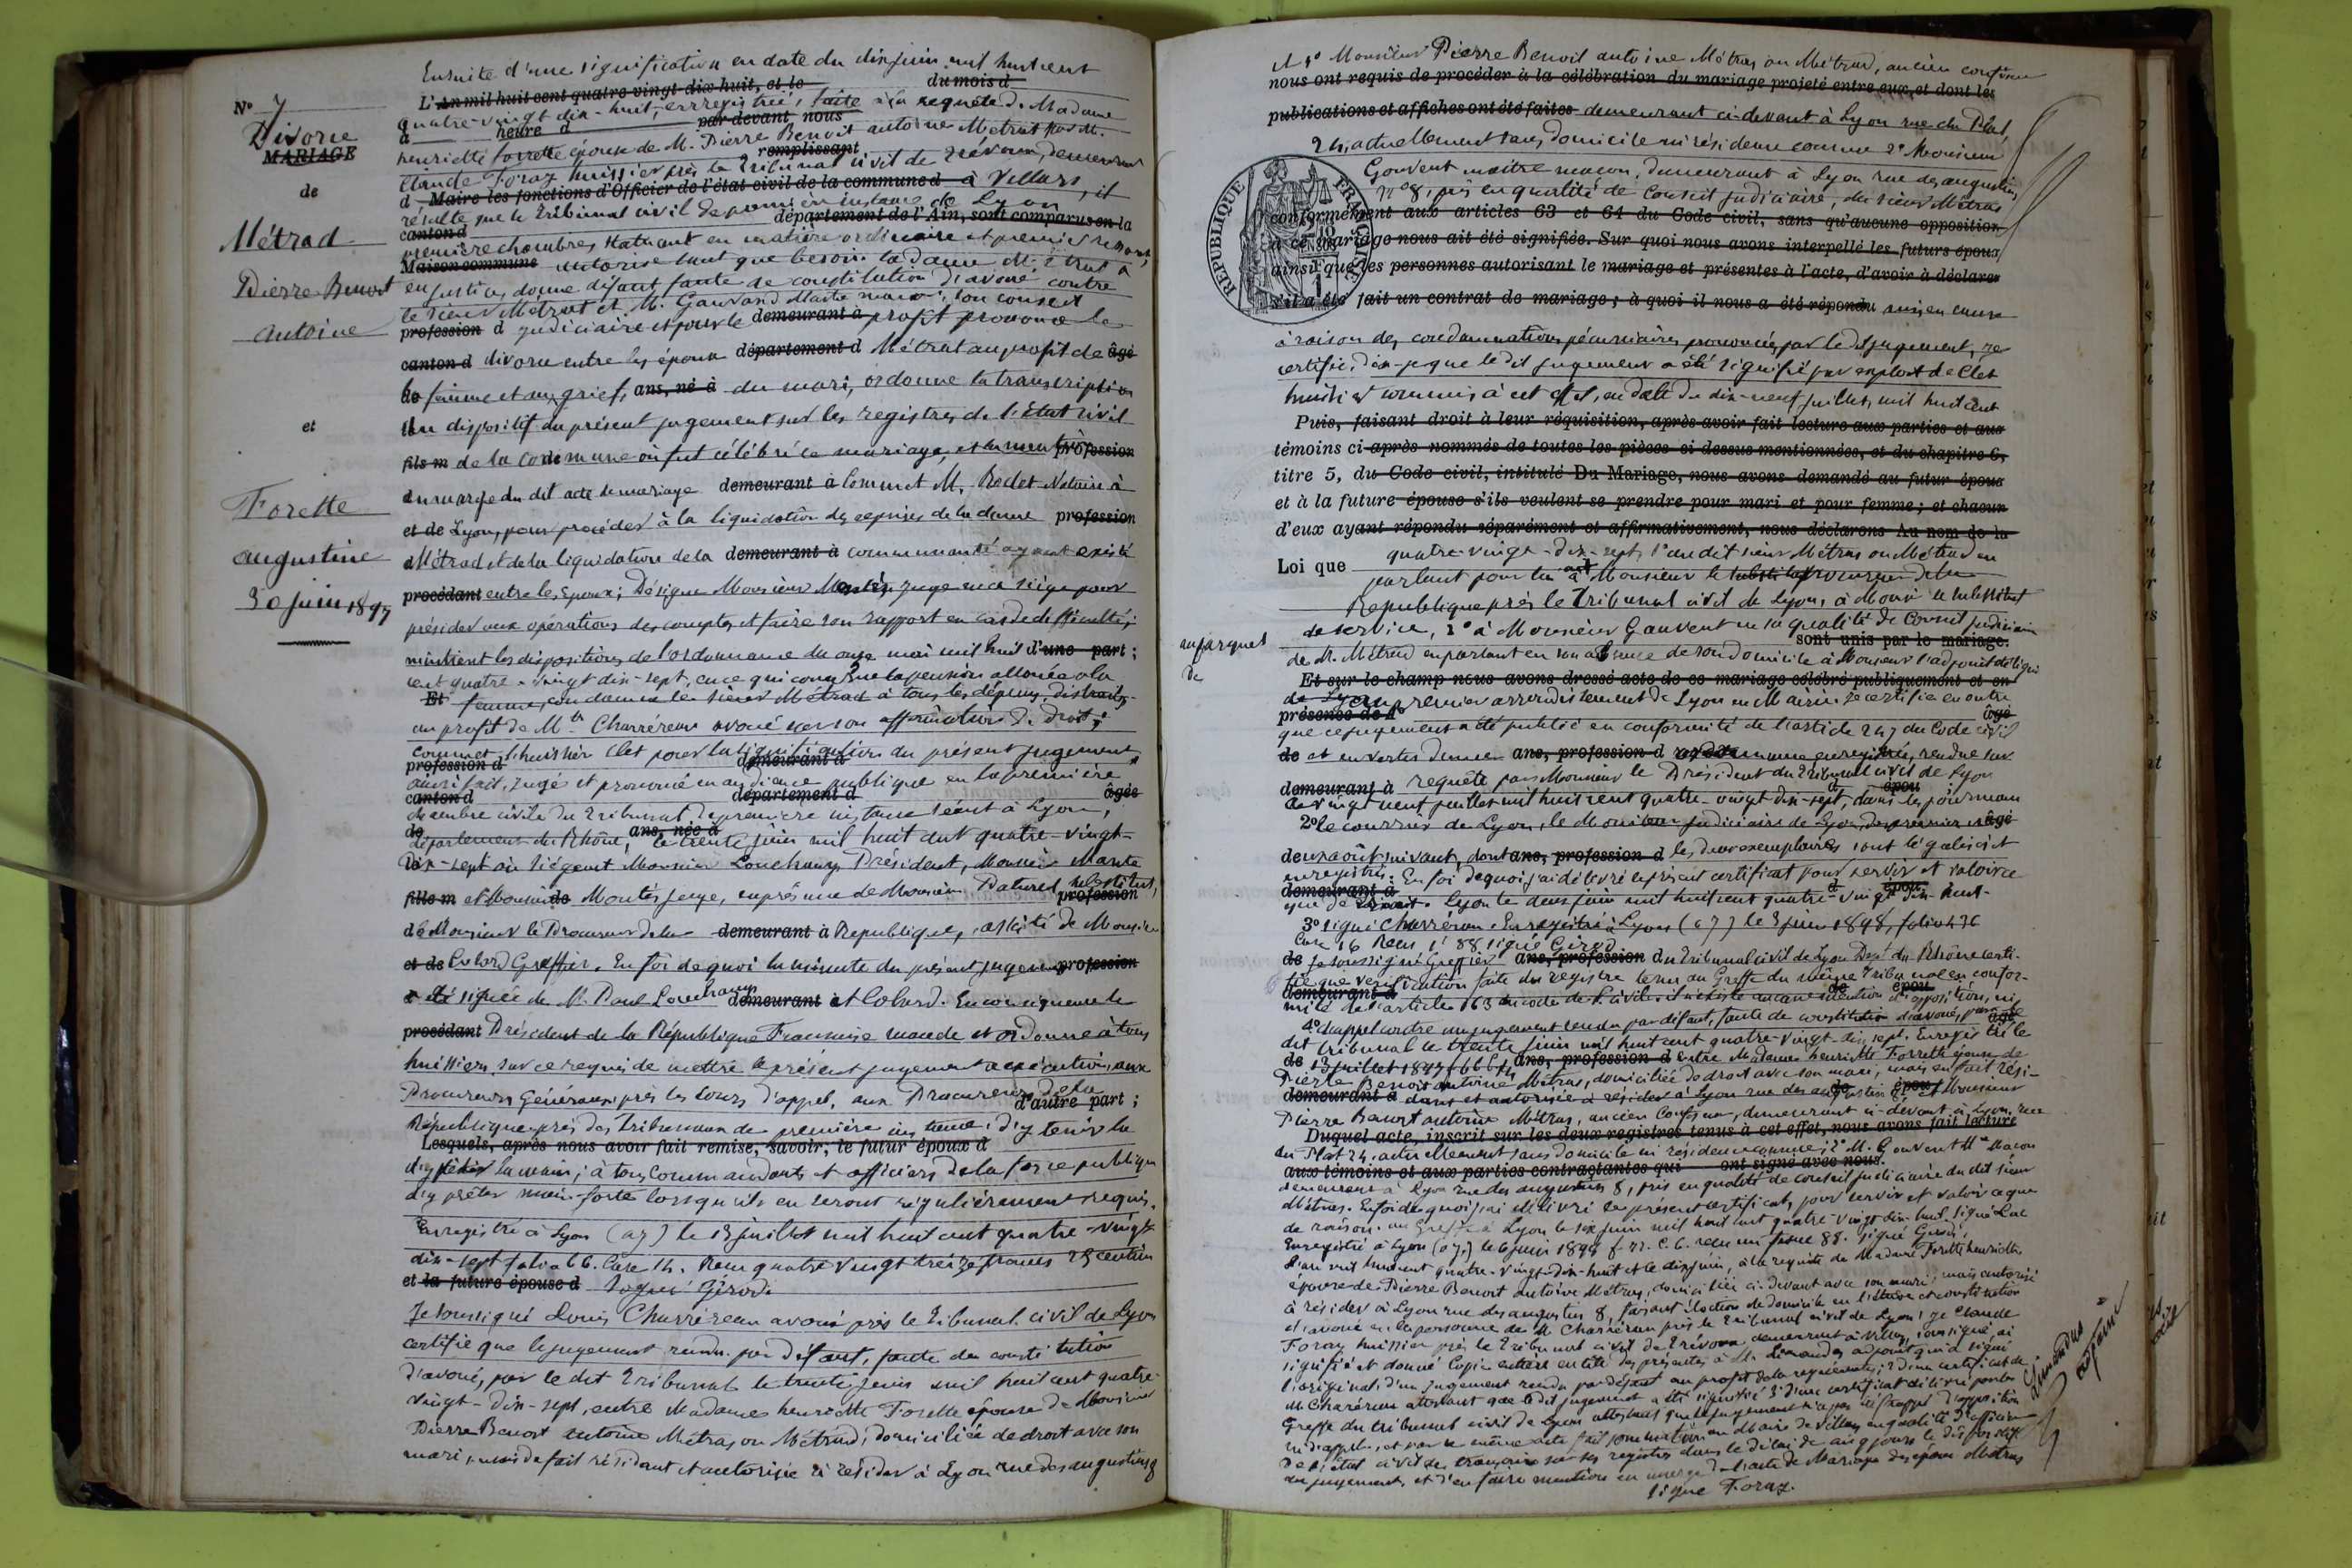 N° 7
Divorce
MARIAGE
de
Métrad
Pierre Benoit
antoine
et
Forette
augustine
30 juin 1897
Ensuite d'une signification en date du dix juin mil huit cent
L'an mil huit cent quatre-vingt-dix huit, et le du mois d
quatre-vingt dix-huit, enregistrée, faite à la requête de Madame
d heure d par-devant nous
henriette Forrette épouse de M. Pierre Benoit antoine Métrat par M.
remplissant
Claude Foraz huissier près le Tribunal civil de Trévoux, demeurant
d Maire les fonctions d'Officier de l'état civil de la commune d à Villars, il
résulte que le Tribunal civil de première instance de Lyon
canton d département de l'Ain, sont comparus en la
première chambre, statuant en matière ordinaire et premier ressort,
Maison commune autorise tant que besoin la dame Métrat à
en justice, donne défaut faute de constitution d'avoué contre
le sieur Métrat et M. Gauvand Maître maçon, son conseil
profession d judiciaire et pour le demeurant à profit prononce le
canton d divorce entre les époux département d Métrat au profit de âgé
la femme et aux griefs ans, né à du mari, ordonne la transcription
du dispositif du présent jugement sur les registres de l'état civil
fils m de la commune où fut célébré ce mariage, et la mention profession
en marge du dit acte de mariage demeurant à Commet M. Rodet Notaire à
et de Lyon, pour procéder à la liquidation des reprises de la dame profession
Métrad et de la liquidation de la demeurant à communauté ayant existé
procédant entre les époux; Désigne Monsieur Montés juge en ce siège pour
présider aux opérations des comptes et faire son rapport en cas de difficultés;
maintient les dispositions de l'ordonnance du onze mai mil huit d'une part;
cent quatre-vingt dix-sept, en ce qui concerne la pension allouée à la
Et femme, condamne le sieur Métrad à tous les dépens, distraits
au profit de Mtre Charréreau avoué sur son affirmation de droit;
commet l'huissier Clet pour la signification du présent jugement
profession d demeurant à
ainsi fait, jugé et prononcé en audience publique en la première
canton d département d âgée
chambre civile du Tribunal de première instance séant à Lyon,
de ans, née à
département du Rhône, le trente juin mil huit cent quatre-vingt-
dix-sept où siégent Monsieur Louchamp Président, Monsieur Marte
fille m et Monsieur de Montés juge, en présence de Monsieur Paturel substitut, profession
de Monsieur le Procureur de la demeurant à République, assisté de Monsieur
et de Colard Greffier. En foi de quoi la minute du présent jugement profession
a été signée de M. Paul Louchamp demeurant et Colard. En conséquence le
procédant Président de la République Française mande et ordonne à tous
huissiers sur ce requis de mettre le présent jugement à exécution, aux
Procureurs Généraux près les Cours d'appel, aux Procureurs de la
d'autre part;
République près des Tribunaux de première instance, d'y tenir la
Lesquels, après nous avoir fait remise, savoir; le futur époux d
la main; à tous commandants et officiers de la force publique
d'y prêter main-forte lorsqu'ils en seront régulièrement requis.
Enregistré à Lyon (a7) le 13 juillet mil huit cent quatre-vingt
dix-sept folio 66 Case 14. Reçu quatre vingt treize francs 75 centimes
et la future épouse d Signé: Girod.
Je soussigné Louis Charréreau avoué près le Tribunal civil de Lyon
certifie que le jugement rendu par défaut, faute de constitution
d'avoué, par le dit Tribunal le trente juin mil huit cent quatre
vingt-dix-sept, entre Madame henriette Forette épouse de Monsieur
Pierre Benoit antoine Métras ou Métrad, domiciliée de droit avec son
mari, mais de fait résidant et autorisée à résider à Lyon rue des augustins 8
Et 1° Monsieur Pierre Benoit antoine Métras ou Métrad, ancien confiseur
nous ont requis de procéder à la célébration du mariage projeté entre eux, et dont les
publications et affiches ont été faites demeurant ci-devant à Lyon rue du Plat,
24, actuellement sans domicile ni résidence connue 2° Monsieur
Gouvent maître maçon, demeurant à Lyon rue des augustins
n° 8, pris en qualité de Conseil judiciaire, du sieur Métras
conformément aux articles 63 et 64 du Code civil, sans qu'aucune opposition
à ce mariage nous ait été signifiée. Sur quoi nous avons interpellé les futurs époux,
ainsi que les personnes autorisant le mariage et présentes à l'acte, d'avoir à déclarer
s'il a été fait un contrat de mariage; à quoi il nous a été répondu mis en cause
RÉPUBLIQUE FRANÇAISE
à raison des condamnations pécuniaires prononcées par le dit jugement, je
certifie, dis-je que le dit jugement a été signifié par exploit de Clet
huissier commis à cet effet, en date du dix-neuf juillet, mil huit cent
Puis, faisant droit à leur réquisition, après avoir fait lecture aux parties et aux
témoins ci-après nommés de toutes les pièces ci-dessus mentionnées, et du chapitre 6,
titre 5, du Code civil, intitulé Du Mariage, nous avons demandé au futur époux
et à la future épouse s'ils veulent se prendre pour mari et pour femme; et chacun
d'eux ayant répondu séparément et affirmativement, nous déclarons Au nom de la
quatre-vingt-dix-sept, 1° au dit sieur Métras ou Métrad en
Loi que
parlant pour lui à Monsieur le substitut procureur de la
au parquet de
République près le Tribunal civil de Lyon, à Monsr le substitut
de service, 2° à Monsieur Gauvent en sa qualité de Conseil judiciaire
sont unis par le mariage.
de M. Métrad en parlant en son absence de son domicile à Monsieur l'adjoint délégué
Et sur le champ nous avons dressé acte de ce mariage célébré publiquement et en
de Lyon premier arrondissement de Lyon en Mairie. Je certifie en outre
présence de 1° âgé
que ce jugement a été publié en conformité de l'article 247 du Code civil
de et en vertu d'une ans, profession d ordonnance enregistrée, rendue sur
demeurant à requête par Monsieur le Président du Tribunal civil de Lyon
le vingt neuf juillet mil huit cent quatre-vingt-dix-sept, dans les journaux
2° le courrier de Lyon, le Moniteur judiciaire de Lyon, des premier et âgé
deux août suivant, dont ans, profession d les deux exemplaires sont légalisés et
enregistrés. En foi de quoi j'ai délivré le présent certificat pour servir et valoir ce
demeurant à d époux
que de raison. Lyon le deux juin mil huit cent quatre-vingt dix-huit-
3° signé Charréreau. Enregistré à Lyon (a7) le 3 juin 1898, folio 436
Case 16 Reçu 1f 88 signé Girod
de Je soussigné Greffier ans, profession du Tribunal civil de Lyon Dept du Rhône certi-
fie que vérification faite du registre tenu au Greffe du même Tribunal en confor-
demeurant à de époux
mité de l'article 163 du code de P. civile, il n'existe aucune mention d'opposition, ni
4° d'appel contre un jugement rendu par défaut, faute de constitution d'avoué, par âgé
dit Tribunal le trente juin mil huit cent quatre-vingt dix sept. Enregistré le
de 13 juillet 1897 f 66 C 14 ans, profession d Entre Madame henriette Forrette épouse de
Pierre Benoit antoine Métras, domiciliée de droit avec son mari, mais en fait rési-
demeurant à dant et autorisée à résider à Lyon rue des augustins 8, et Monsieur
Pierre Benoit antoine Métras, ancien Confiseur, demeurant ci-devant à Lyon, rue
Duquel acte, inscrit sur les deux registres tenus à cet effet, nous avons fait lecture
du Plat 24, actuellement sans domicile ni résidence connue; 2° M. Gouvent Me Maçon
aux témoins et aux parties contractantes qui ont signé avec nous.
demeurant à Lyon rue des augustins 8, pris en qualité de conseil judiciaire du dit sieur
Métras. En foi de quoi j'ai délivré le présent certificat, pour servir et valoir ce que
de raison. au Greffe à Lyon le six juin mil huit cent quatre-vingt-dix-huit. Signé Luc
Enregistré à Lyon (a7.) le 6 juin 1898 f. 71. C. 6. reçu un franc 88. signé Girod;
L'an mil huit cent quatre-vingt-dix-huit et le dix juin, à la requête de Madame Forette henriette
épouse de Pierre Benoit antoine Métras, domiciliée ci-devant avec son mari, mais autorisée
à résider à Lyon rue des augustins 8, faisant élection de domicile en l'étude et constitution
d'avoué en la personne de Me Charréreau près le Tribunal civil de Lyon; je Claude
Foraz huissier près le Tribunal civil de Trévoux demeurant à Villars, soussigné, ai
signifié et donné copie entière en tête des présentes à Mr Limandas adjoint qui a signé
l'original, d'un jugement rendu par défaut au profit de la requérante; 2° d'un certificat de
M Charréreau attestant que le dit jugement a été signifié 3° d'un certificat délivré par le
Greffe du tribunal civil de Lyon attestant que le jugement n'a pas été frappé d'opposition
ni d'appel, et par le même acte fait sommation au Maire de Villars en qualité d'officier
de l'état civil de transcrire sur ses registres dans le délai de cinq jours le dispositif
du jugement, et d'en faire mention en marge de l'acte de Mariage des époux Métras
Signé Foraz.
Limandas
adjoint